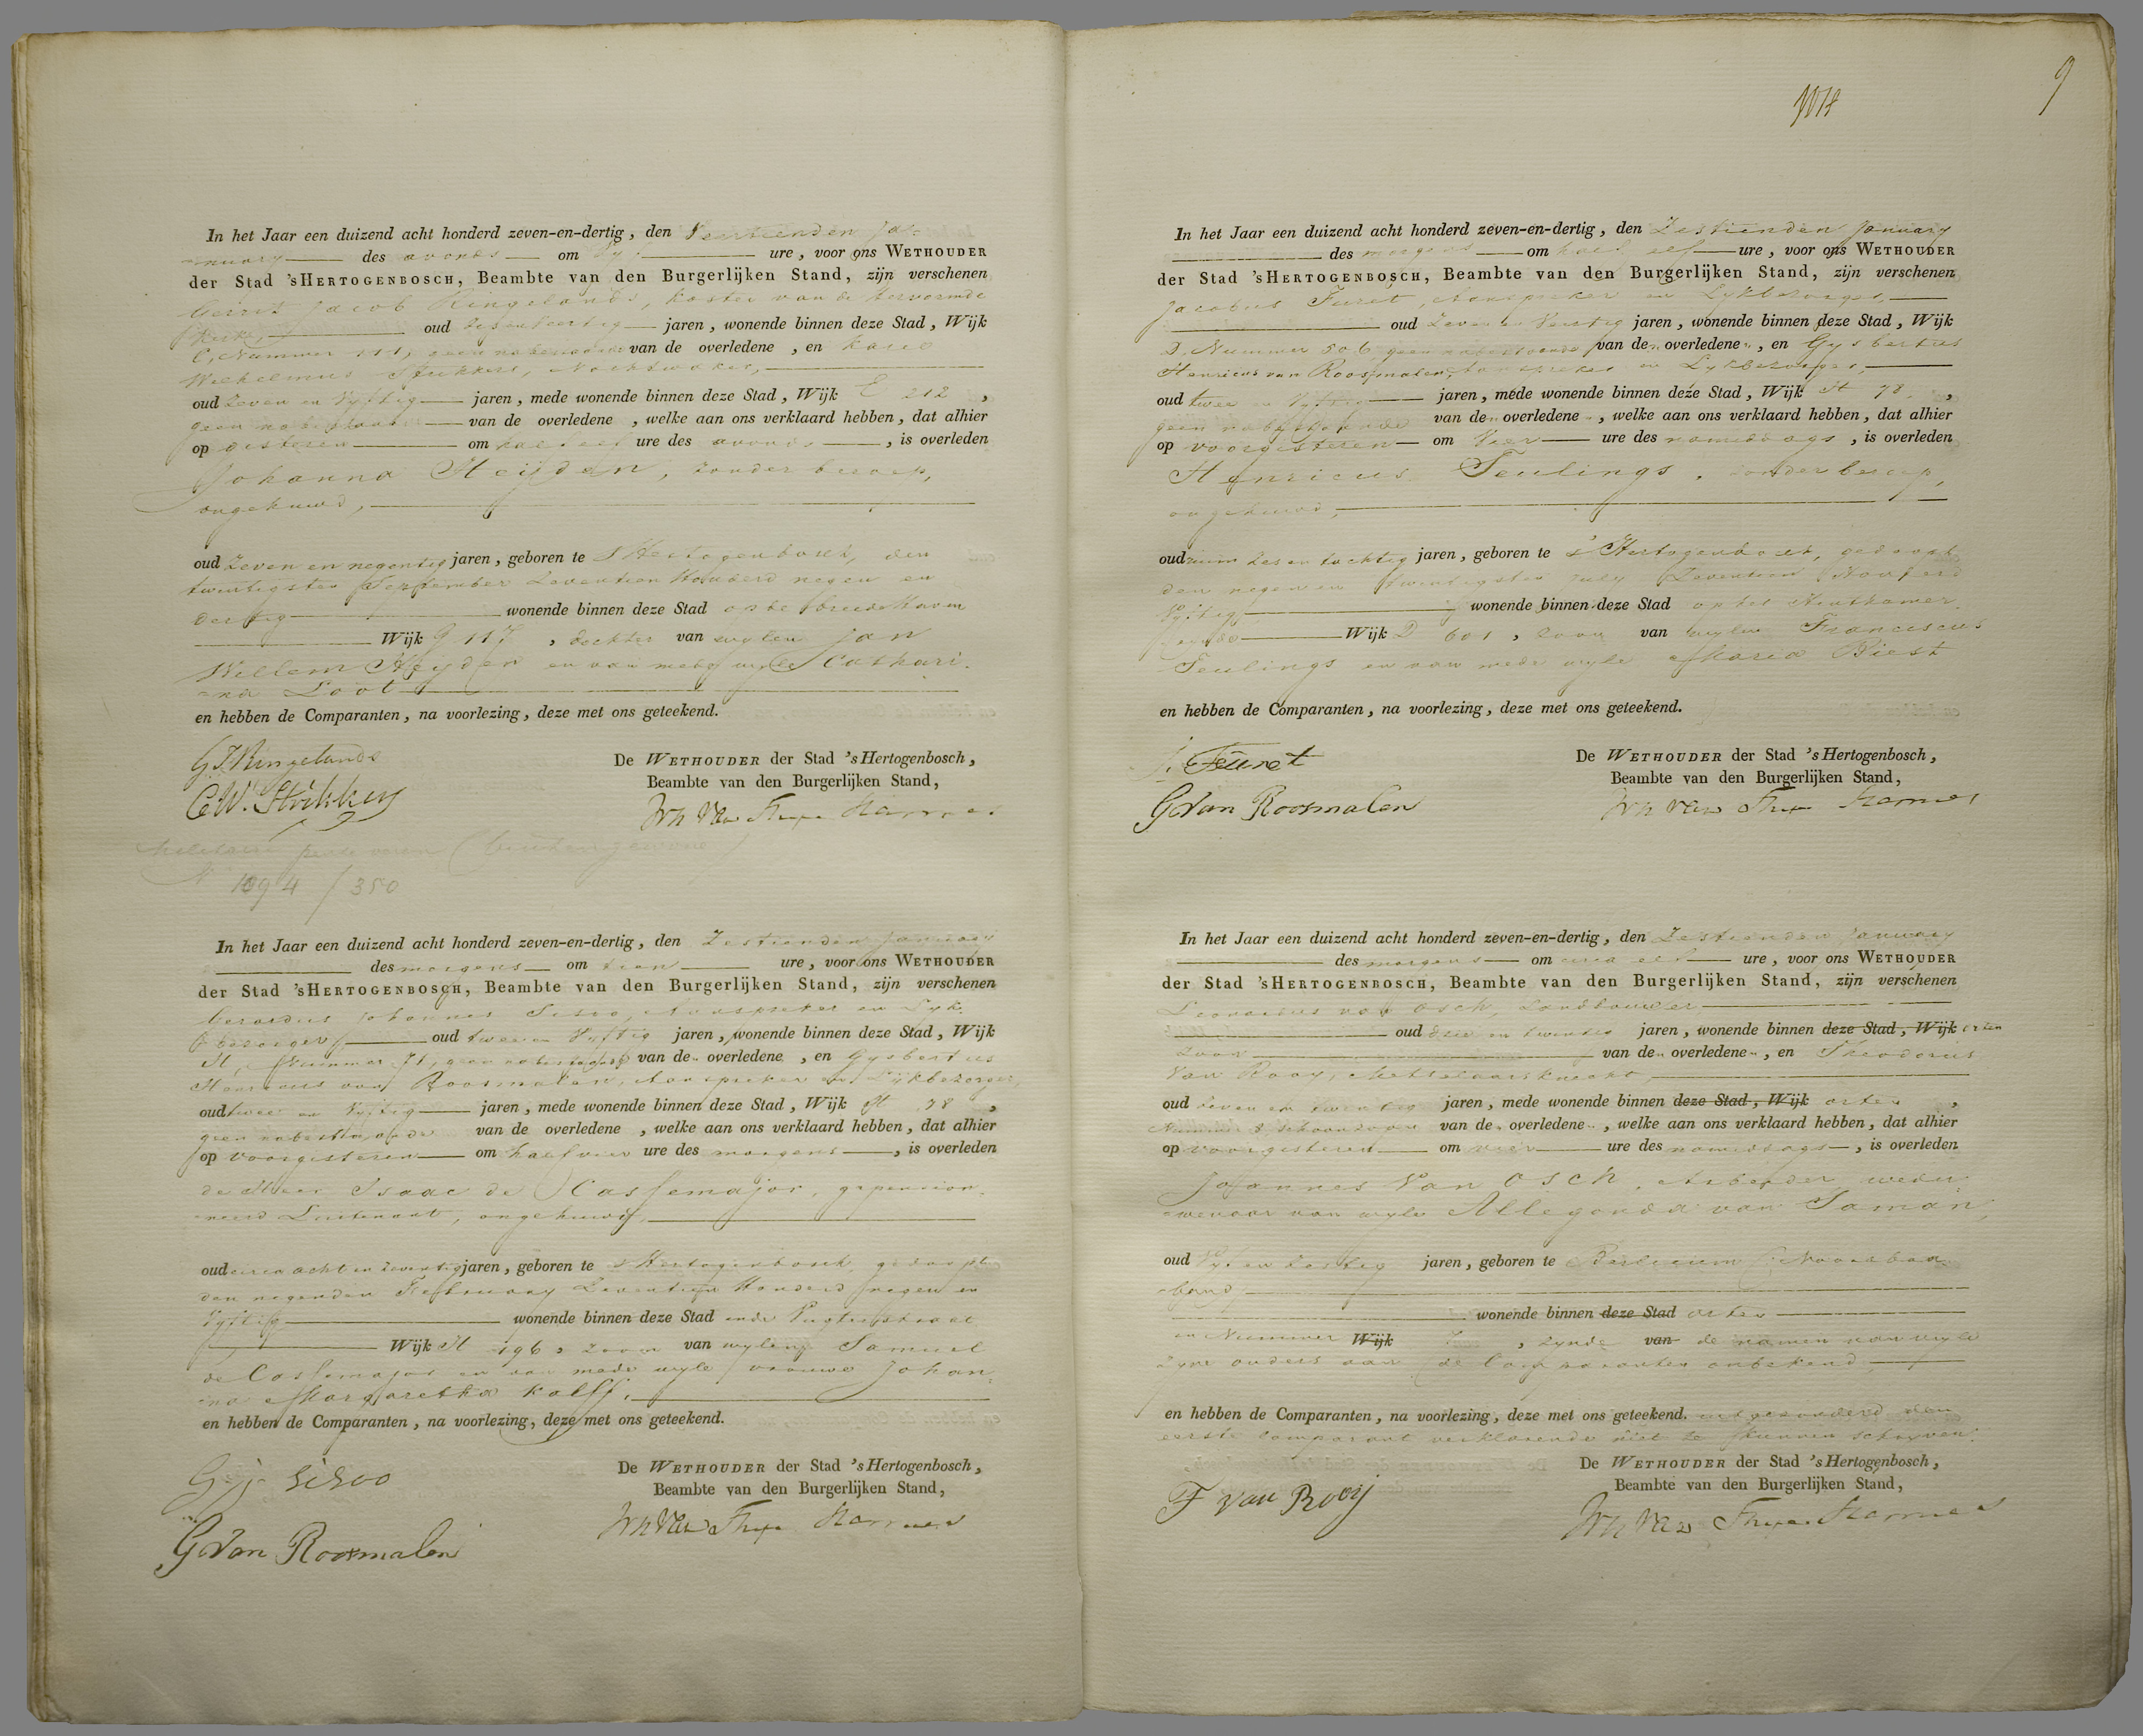 In het Jaar een duizend acht honderd zeven-en-dertig, den Veertienden Ja-
-nuary des avonds om ure, voor ons WETHOUDER
der Stad 'sHERTOGENBOSCH, Beambte van den Burgerlijken Stand, zijn verschenen
Gerrit Jacob Ringelands, koster van de hervormde
Kerk, oud zes en veertig jaren, wonende binnen deze Stad, Wijk
C, Nummer 111, geen nabestaande van de overledene, en Karel
Wilhelmus Strikkers, Nachtwaker,
oud zeven en vyftig jaren, mede wonende binnen deze Stad, Wijk E 212,
geen nabestaande van de overledene, welke aan ons verklaard hebben, dat alhier
op gisteren om half elf ure des avonds, is overleden
Johanna Heyden, zonder beroep,
ongehuwd,
oud zeven en negentig jaren, geboren te 's Hertogenbosch, den
twintigsten September Zeventien Honderd negen en
dertig wonende binnen deze Stad op de breede Haven
Wijk G 117, dochter van wylen Jan
Willem Heyden en van mede wyle Cathari-
-na Loot
en hebben de Comparanten, na voorlezing, deze met ons geteekend.
G.J. Ringelands
C.W. Strikkers
De WETHOUDER der Stad 's Hertogenbosch,
Beambte van den Burgerlijken Stand,
1094 / 350
In het Jaar een duizend acht honderd zeven-en-dertig, den Zestienden January
des morgens om tien ure, voor ons WETHOUDER
der Stad 'sHERTOGENBOSCH, Beambte van den Burgerlijken Stand, zijn verschenen
Gerardus Johannes Sisoo, Aanspreker en Lyk-
bezorger, oud twee en Vyftig jaren, wonende binnen deze Stad, Wijk
H, Nummer 71, geen nabestaande van de overledene, en Gysbertus
Henricus van Roosmalen, Aanspreker en Lijkbezorger,
oud twee en Vyftig jaren, mede wonende binnen deze Stad, Wijk H 78,
geen nabestaande van de overledene, welke aan ons verklaard hebben, dat alhier
op voorgisteren om half vier ure des morgens, is overleden
de Heer Isaac de Cassemajor, gepension-
-neerd Luitenant, ongehuwd,
oud circa acht en zeventig jaren, geboren te 's Hertogenbosch, gedoopt
den negenden February Zeventien Honderd negen en
Vyftig wonende binnen deze Stad in de Vugterstraat
Wijk H 196, zoon van wylen Samuel
de Cassemajor en van mede wyle vrouwe Johan-
-na Margaretha Kalff,
en hebben de Comparanten, na voorlezing, deze met ons geteekend.
G.J. Sisoo
G van Roosmalen
De WETHOUDER der Stad 's Hertogenbosch,
Beambte van den Burgerlijken Stand,
9
In het Jaar een duizend acht honderd zeven-en-dertig, den Zestienden January
des morgens om half elf ure, voor ons WETHOUDER
der Stad 'sHERTOGENBOSCH, Beambte van den Burgerlijken Stand, zijn verschenen
Jacobus Feuret, Aanspreker en Lykbezorger,
oud Zeven en Veertig jaren, wonende binnen deze Stad, Wijk
D, Nummer 506, geen nabestaande van den overledenen, en Gysbertus
Henricus van Roosmalen, Aanspreker en Lykbezorger,
oud twee en Vyftig jaren, mede wonende binnen deze Stad, Wijk H 78,
geen nabestaande van den overledenen, welke aan ons verklaard hebben, dat alhier
op voorgisteren om Vier ure des namiddags, is overleden
Henricus Teulings, zonder beroep,
ongehuwd,
oud ruim zes en tachtig jaren, geboren te 's Hertogenbosch, gedoopt
den negen en twintigsten July Zeventien Honderd
Vyftig wonende binnen deze Stad op het Hinthamer-
einde Wijk D 601, zoon van wylen Franciscus
Teulings en van mede wyle Maria Biest
en hebben de Comparanten, na voorlezing, deze met ons geteekend.
J. Feuret
G van Roosmalen
De WETHOUDER der Stad 's Hertogenbosch,
Beambte van den Burgerlijken Stand,
In het Jaar een duizend acht honderd zeven-en-dertig, den Zestienden January
des morgens om circa elf ure, voor ons WETHOUDER
der Stad 'sHERTOGENBOSCH, Beambte van den Burgerlijken Stand, zijn verschenen
Leonardus van Osch, Landbouwer
oud drie en twintig jaren, wonende binnen deze Stad, Wijk orten
zoon van den overledenen, en Theodorus
Van Rooy, Mettelaarsknecht,
oud zeven en twintig jaren, mede wonende binnen deze Stad, Wijk orten,
Nummer 8, schoonzoon van den overledenen, welke aan ons verklaard hebben, dat alhier
op voorgisteren om vier ure des namiddags, is overleden
Johannes Van Osch, Arbeider, wedu-
-wenaar van wyle Allegonda van Saman,
oud Vyf en zestig jaren, geboren te Berlicum (Noordbra-
-band)
wonende binnen deze Stad orten
en Nummer Wijk , zynde van de namen van wyle
zyne ouders aan de Comparanten onbekend
en hebben de Comparanten, na voorlezing, deze met ons geteekend. uitgezonderd den
eerste Comparant verklarende niet te kunnen schryven.
T van Rooij
De WETHOUDER der Stad 's Hertogenbosch,
Beambte van den Burgerlijken Stand,